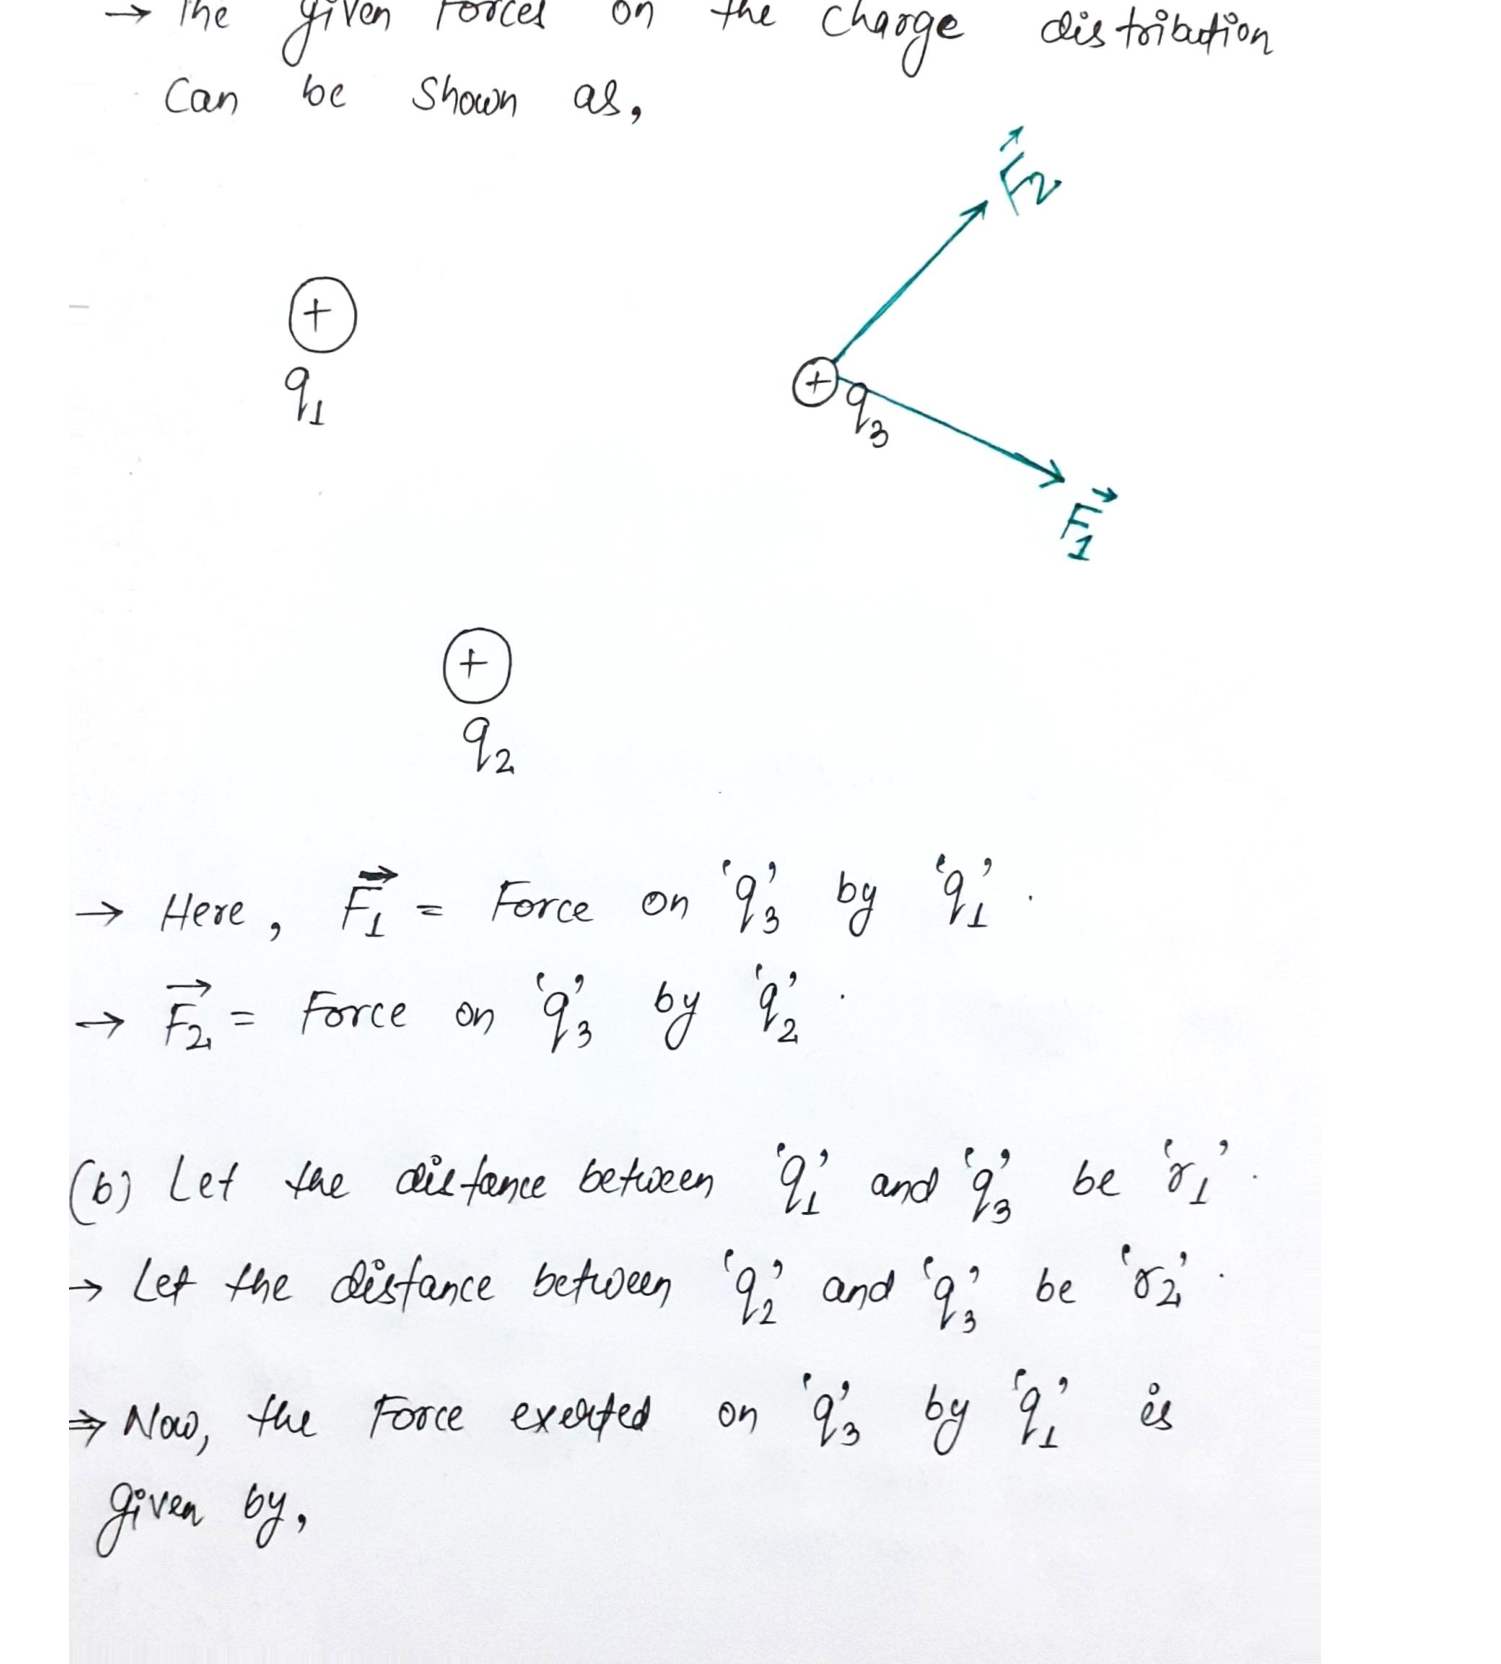 → The given Forces on the charge distribution
Can be Shown as,
F⃗2
+
q1
+ q3
F⃗1
+
q2
→ Here, F⃗1 = Force on 'q3' by 'q1'.
→ F⃗2 = Force on 'q3' by 'q2'.
(b) Let the distance between 'q1' and 'q3' be 'r1'.
→ Let the distance between 'q2' and 'q3' be 'r2'.
⇒ Now, the Force exerted on 'q3' by 'q1' is
given by,